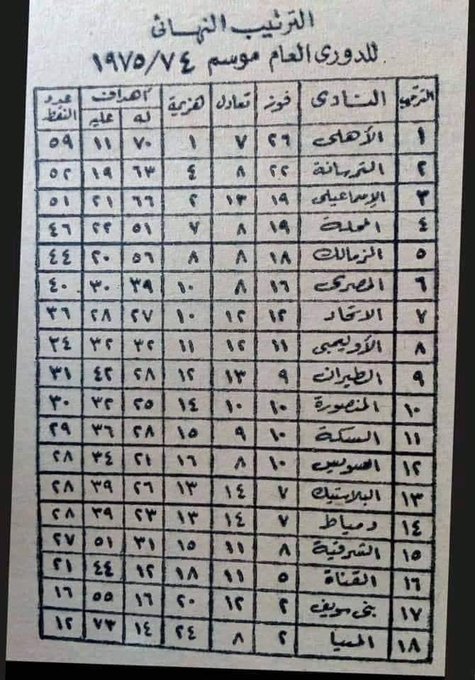 الترتيب النهائى
للدورى العام موسم ٧٤/١٩٧٥
الترتيب النادى فوز تعادل هزيمة أهداف عدد النقط
له عليه
١ الأهلى ٢٦ ٧ ١ ٧٠ ١١ ٥٩
٢ الترسانة ٢٢ ٨ ٤ ٦٣ ١٩ ٥٢
٣ الإسماعيلى ١٩ ١٣ ٢ ٦٦ ٢١ ٥١
٤ المحلة ١٩ ٨ ٧ ٥١ ٢٢ ٤٦
٥ الزمالك ١٨ ٨ ٨ ٥٦ ٢٠ ٤٤
٦ المصرى ١٦ ٨ ١٠ ٣٩ ٣٠ ٤٠
٧ الاتحاد ١٢ ١٢ ١٠ ٢٧ ٢٨ ٣٦
٨ الأوليمبى ١١ ١٢ ١١ ٣٢ ٣٢ ٣٤
٩ الطيران ٩ ١٣ ١٢ ٢٨ ٤٢ ٣١
١٠ المنصورة ١٠ ١٠ ١٤ ٢٥ ٣٢ ٣٠
١١ السكة ١٠ ٩ ١٥ ٢٨ ٣٦ ٢٩
١٢ السويس ١٠ ٨ ١٦ ٢١ ٣٤ ٢٨
١٣ البلاستيك ٧ ١٤ ١٣ ٢٦ ٣٩ ٢٨
١٤ دمياط ٧ ١٤ ١٣ ٢٣ ٣٩ ٢٨
١٥ الشرقية ٨ ١١ ١٥ ٣١ ٥١ ٢٧
١٦ القناة ٥ ١١ ١٨ ١٢ ٤٤ ٢١
١٧ بنى سويف ٢ ١٢ ٢٠ ١٦ ٥٥ ١٦
١٨ المنيا ٢ ٨ ٢٤ ١٤ ٧٣ ١٢